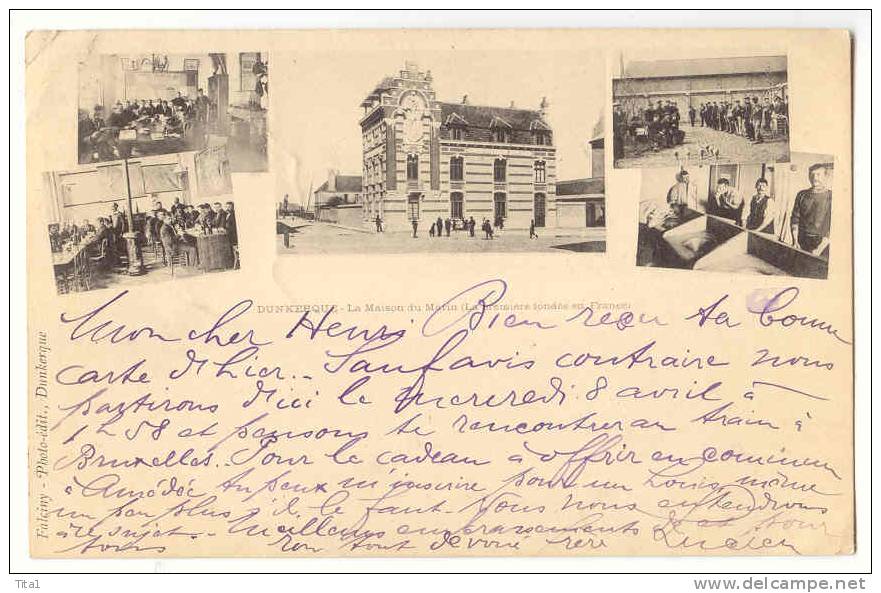 DUNKERQUE - La Maison du Marin (La première fondée en France)
Falciny - Photo-édit., Dunkerque
Mon cher Henri Bien reçu ta bonne
carte d'hier.. Sauf avis contraire nous
partirons d'ici le Mercredi 8 avril à
1h58 et pensons te rencontrer au train à
Bruxelles.. Pour le cadeau à offrir en commun
à Amédée tu peux m'inscrire pour un Louis même
un peu plus s'il le faut. Nous nous entendrons
à ce sujet.. Meilleurs embrassements à et pour
tous ton tout dévoué frère Lucien
Tital
www.delcampe.net